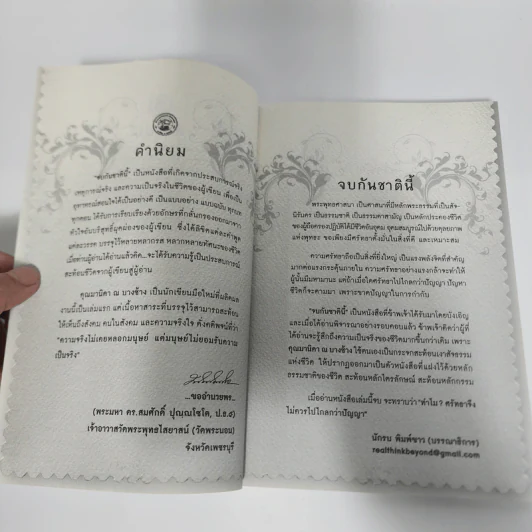 คำนิยม
"จบกันชาตินี้" เป็นหนังสือที่เกิดจากประสบการณ์จริง
เหตุการณ์จริง และความเป็นจริงในชีวิตของผู้เขียน เพื่อเป็น
อุทาหรณ์สอนใจได้เป็นอย่างดี เป็นแบบอย่าง แบบฉบับ ทุกบท
ทุกตอน ได้รับการเรียบเรียงด้วยอักษรที่กลั่นกรองออกมาจาก
แต่ละวรรค บรรจุไว้หลายหลากรส หลากหลายทัศนะของชีวิต
เมื่อท่านผู้อ่านได้อ่านแล้วคิด...จะได้รับความรู้เป็นประสบการณ์
สะท้อนชีวิตจากผู้เขียนสู่ผู้อ่าน
คุณมานิตา ณ บางช้าง เป็นนักเขียนมือใหม่ที่ผลิตผล
งานนี้เป็นเล่มแรก แต่เนื้อหาสาระที่บรรจุไว้สามารถสะท้อน
ให้เห็นถึงสังคม คนในสังคม และความจริงใจ ดั่งคติพจน์ที่ว่า
"ความจริงไม่เคยหลอกมนุษย์ แต่มนุษย์ไม่ยอมรับความ
เป็นจริง"
...ขออำนวยพร..
(พระมหา ดร.สมศักดิ์ ปุณฺณโชโต, ป.ธ.๕)
เจ้าอาวาสวัดพระพุทธไสยาสน์ (วัดพระนอน)
จังหวัดเพชรบุรี
จบกันชาตินี้
พระพุทธศาสนา เป็นศาสนาที่มีหลักพระธรรมที่เป็นสัจ-
นิรันดร เป็นธรรมชาติ เป็นธรรมดาสามัญ เป็นหลักประคองชีวิต
ของผู้ถือครองปฏิบัติได้มีชีวิตอันอุดม อุดมสมบูรณ์ไปด้วยดุลยภาพ
แห่งพุทธะ ขอเพียงมีศรัทธาตั้งมั่นในสิ่งที่ดี และเหมาะสม
ความศรัทธาถือเป็นสิ่งที่ยิ่งใหญ่ เป็นแรงพลังจิตที่สำคัญ
มากต่อแรงกระตุ้นภายใน ความศรัทธาอย่างแรงกล้าจะทำให้
ผู้นั้นมีมหามานะ แต่ถ้าเมื่อใดศรัทธาไปไกลกว่าปัญญา ปัญหา
ชีวิตก็จะตามมา เพราะขาดปัญญาในการกำกับ
"จบกันชาตินี้" เป็นหนังสือที่ข้าพเจ้าได้รับมาโดยบังเอิญ
และเมื่อได้อ่านพิจารณาอย่างรอบคอบแล้ว ข้าพเจ้าคิดว่าผู้ที่
ได้อ่านจะรู้สึกถึงความเป็นจริงของชีวิตมากขึ้นกว่าเดิม เพราะ
คุณมานิตา ณ บางช้าง ใช้ตนเองเป็นกระจกสะท้อนเงาสัจธรรม
แห่งชีวิต ให้ปรากฏออกมาเป็นตัวหนังสือที่แฝงไว้ด้วยหลัก
ธรรมชาติของชีวิต สะท้อนหลักไตรลักษณ์ สะท้อนหลักกรรม
เมื่ออ่านหนังสือเล่มนี้จบ จะทราบว่า "ทำไม? ศรัทธาจึง
ไม่ควรไปไกลกว่าปัญญา"
นักรบ พิมพ์ขาว (บรรณาธิการ)
realthinkbeyond@gmail.com